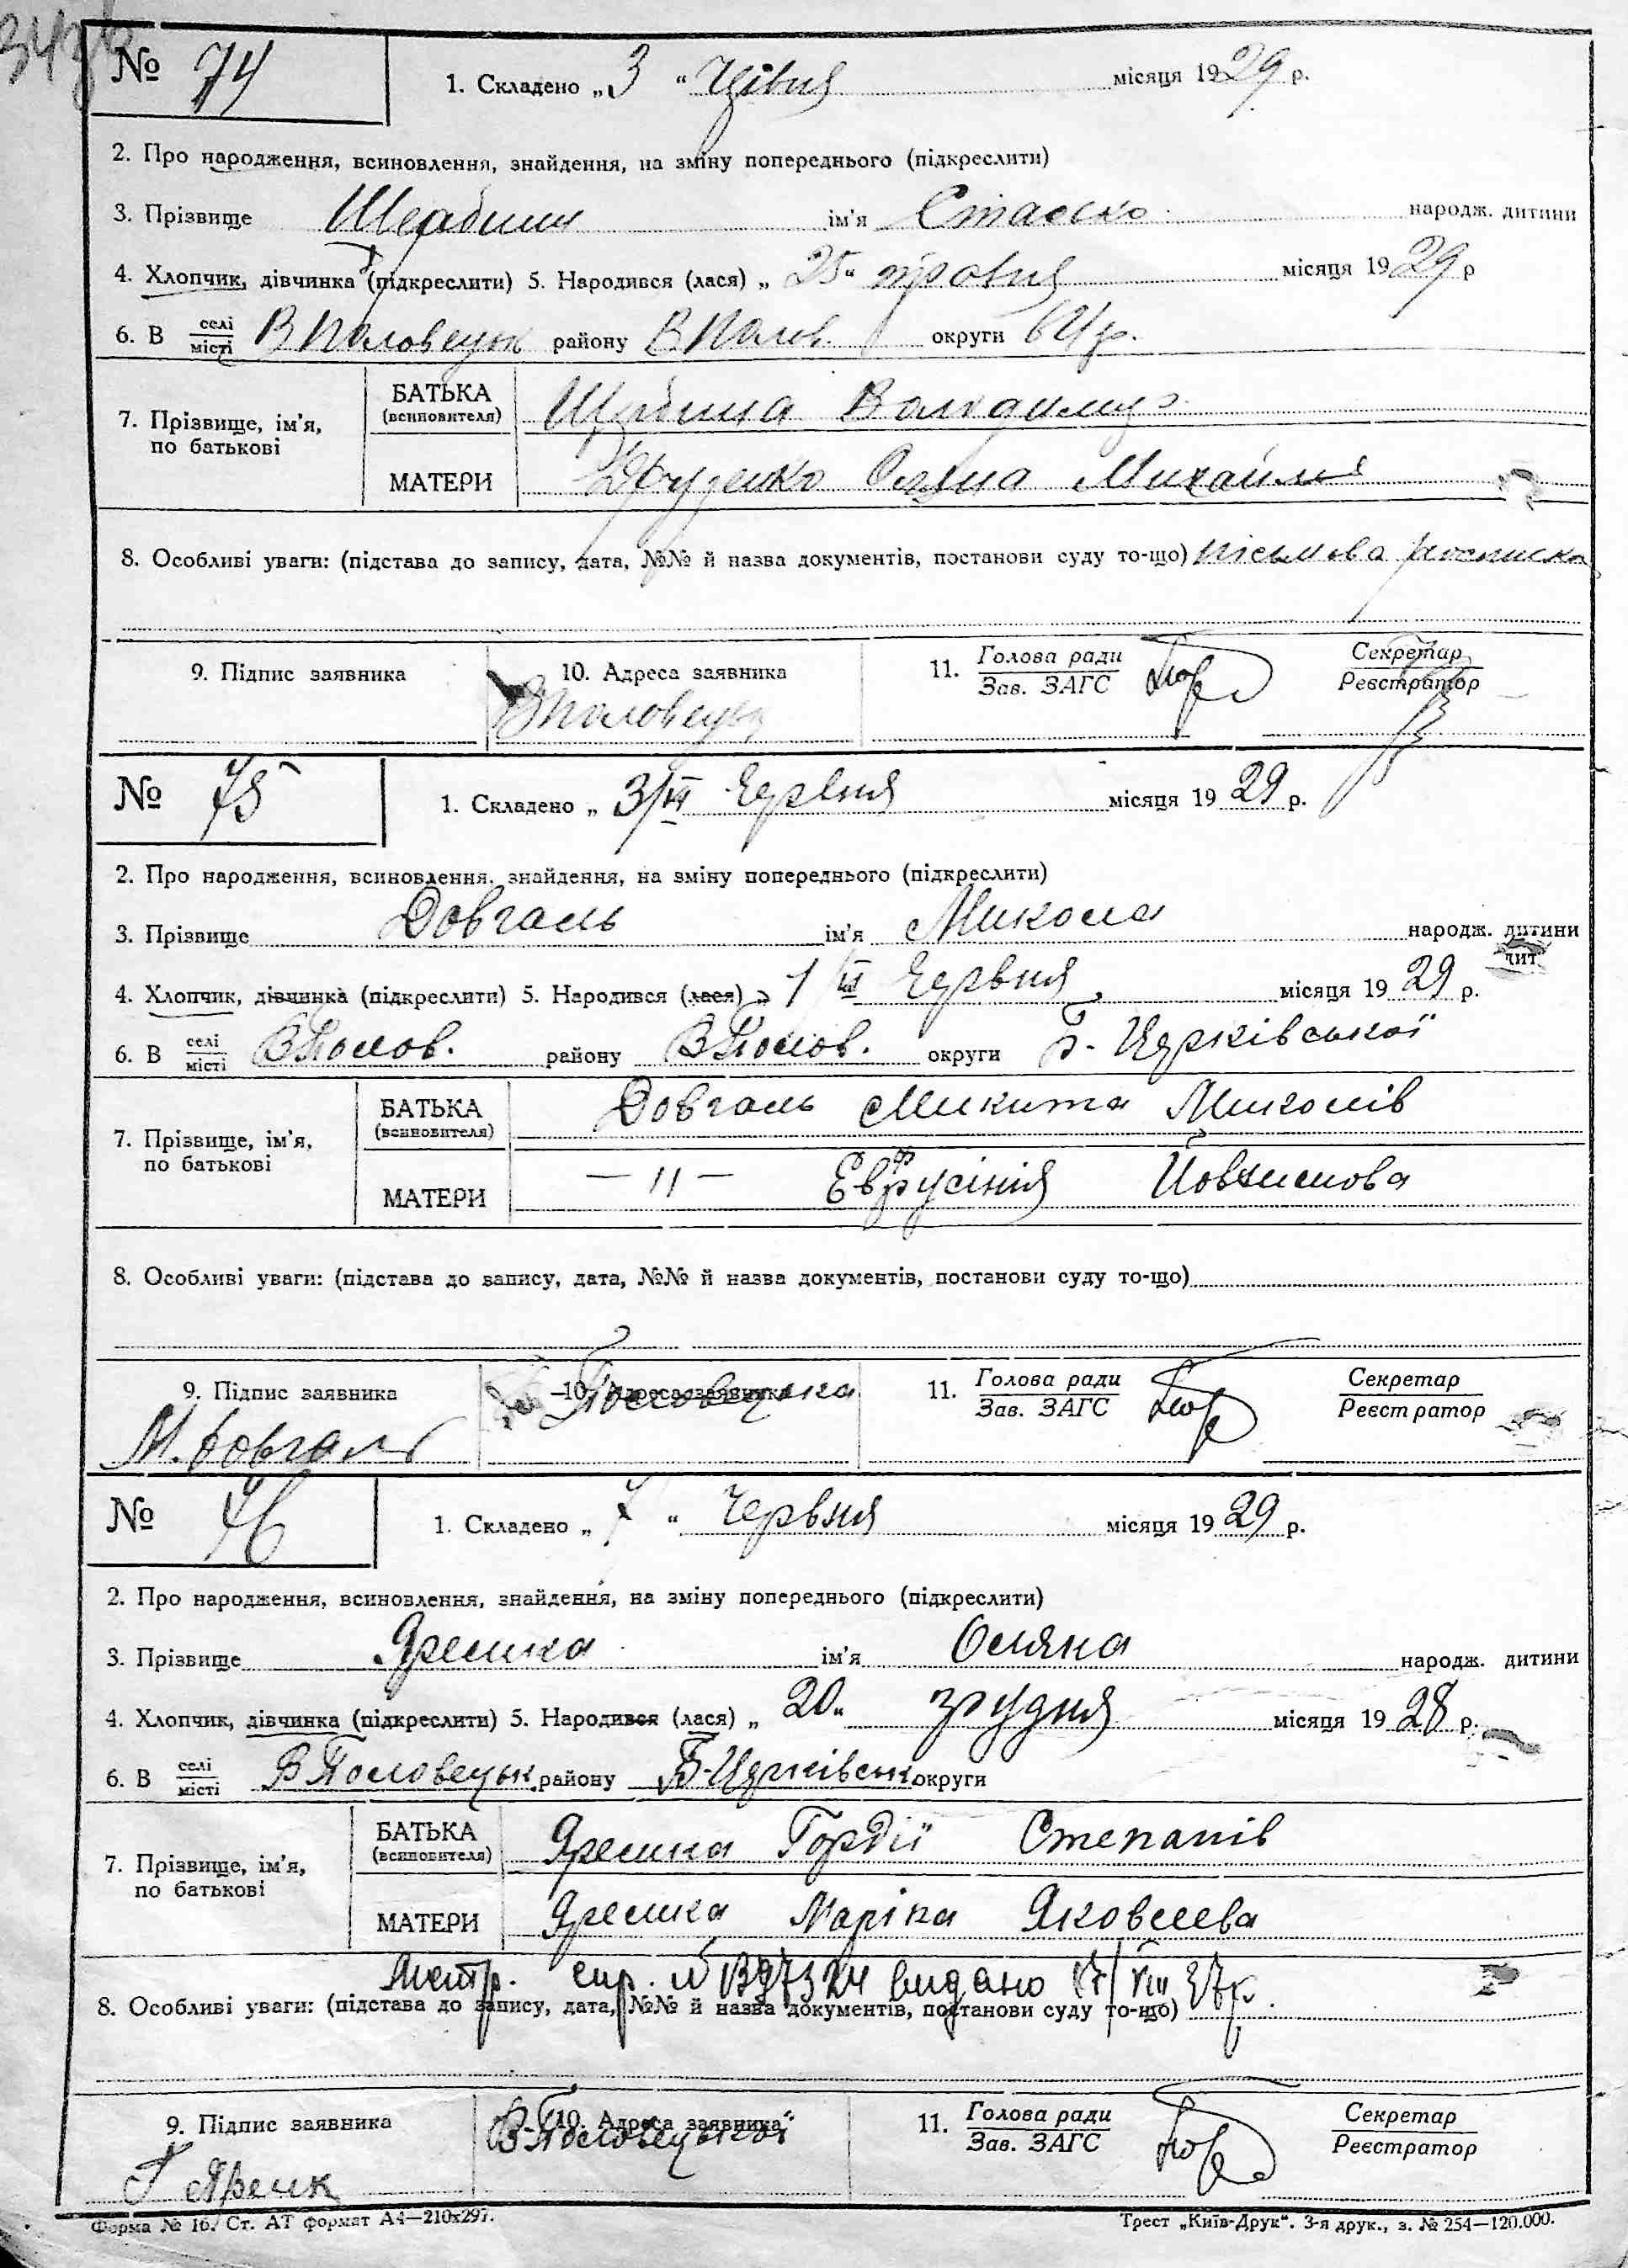 № 74
1. Складено „ 3 “ місяця 1929 р.
2. Про народження, всиновлення, знайдення, на зміну попереднього (підкреслити)
3. Прізвище ім'я народж. дитини
4. Хлопчик, дівчинка (підкреслити) 5. Народився (лася) „ 25 “ травня місяця 1929 р
6. В селі/місті В Половецьк району В Полов. округи БЦр.
7. Прізвище, ім'я, по батькові
БАТЬКА (всиновителя) Щербина Володимир
МАТЕРИ Оляна Михайл
8. Особливі уваги: (підстава до запису, дата, №№ й назва документів, постанови суду то-що)
9. Підпис заявника
10. Адреса заявника
В Половецьк
11. Голова ради / Зав. ЗАГС
Секретар / Реєстратор
№ 75
1. Складено „ 3/VI Червня місяця 1929 р.
2. Про народження, всиновлення, знайдення, на зміну попереднього (підкреслити)
3. Прізвище Довгаль ім'я Микола народж. дитини
4. Хлопчик, дівчинка (підкреслити) 5. Народився (лася) „ 1/VI Червня місяця 1929 р.
6. В селі/місті В Полов. району В Полов. округи Б-Церківської
7. Прізвище, ім'я, по батькові
БАТЬКА (всиновителя) Довгаль Микита Миколів
МАТЕРИ — " — Евфрусінія
8. Особливі уваги: (підстава до запису, дата, №№ й назва документів, постанови суду то-що)
9. Підпис заявника
М. Довгаль
10. Адреса заявника
11. Голова ради / Зав. ЗАГС
Секретар / Реєстратор
№ 76
1. Складено „ 7 “ Червня місяця 1929 р.
2. Про народження, всиновлення, знайдення, на зміну попереднього (підкреслити)
3. Прізвище Яремка ім'я Оляна народж. дитини
4. Хлопчик, дівчинка (підкреслити) 5. Народився (лася) „ 20 “ грудня місяця 1928 р.
6. В селі/місті В Половецьк району Б-Церківськ округи
7. Прізвище, ім'я, по батькові
БАТЬКА (всиновителя) Яремка Гордій Степанів
МАТЕРИ Яремка Маріна Яковлева
видано 17/VIII 37р.
8. Особливі уваги: (підстава до запису, дата, №№ й назва документів, постанови суду то-що)
9. Підпис заявника
10. Адреса заявника
11. Голова ради / Зав. ЗАГС
Секретар / Реєстратор
Форма № 16. Ст. АТ формат А4—210х297.
Трест „Київ-Друк“. 3-я друк., з. № 254—120.000.